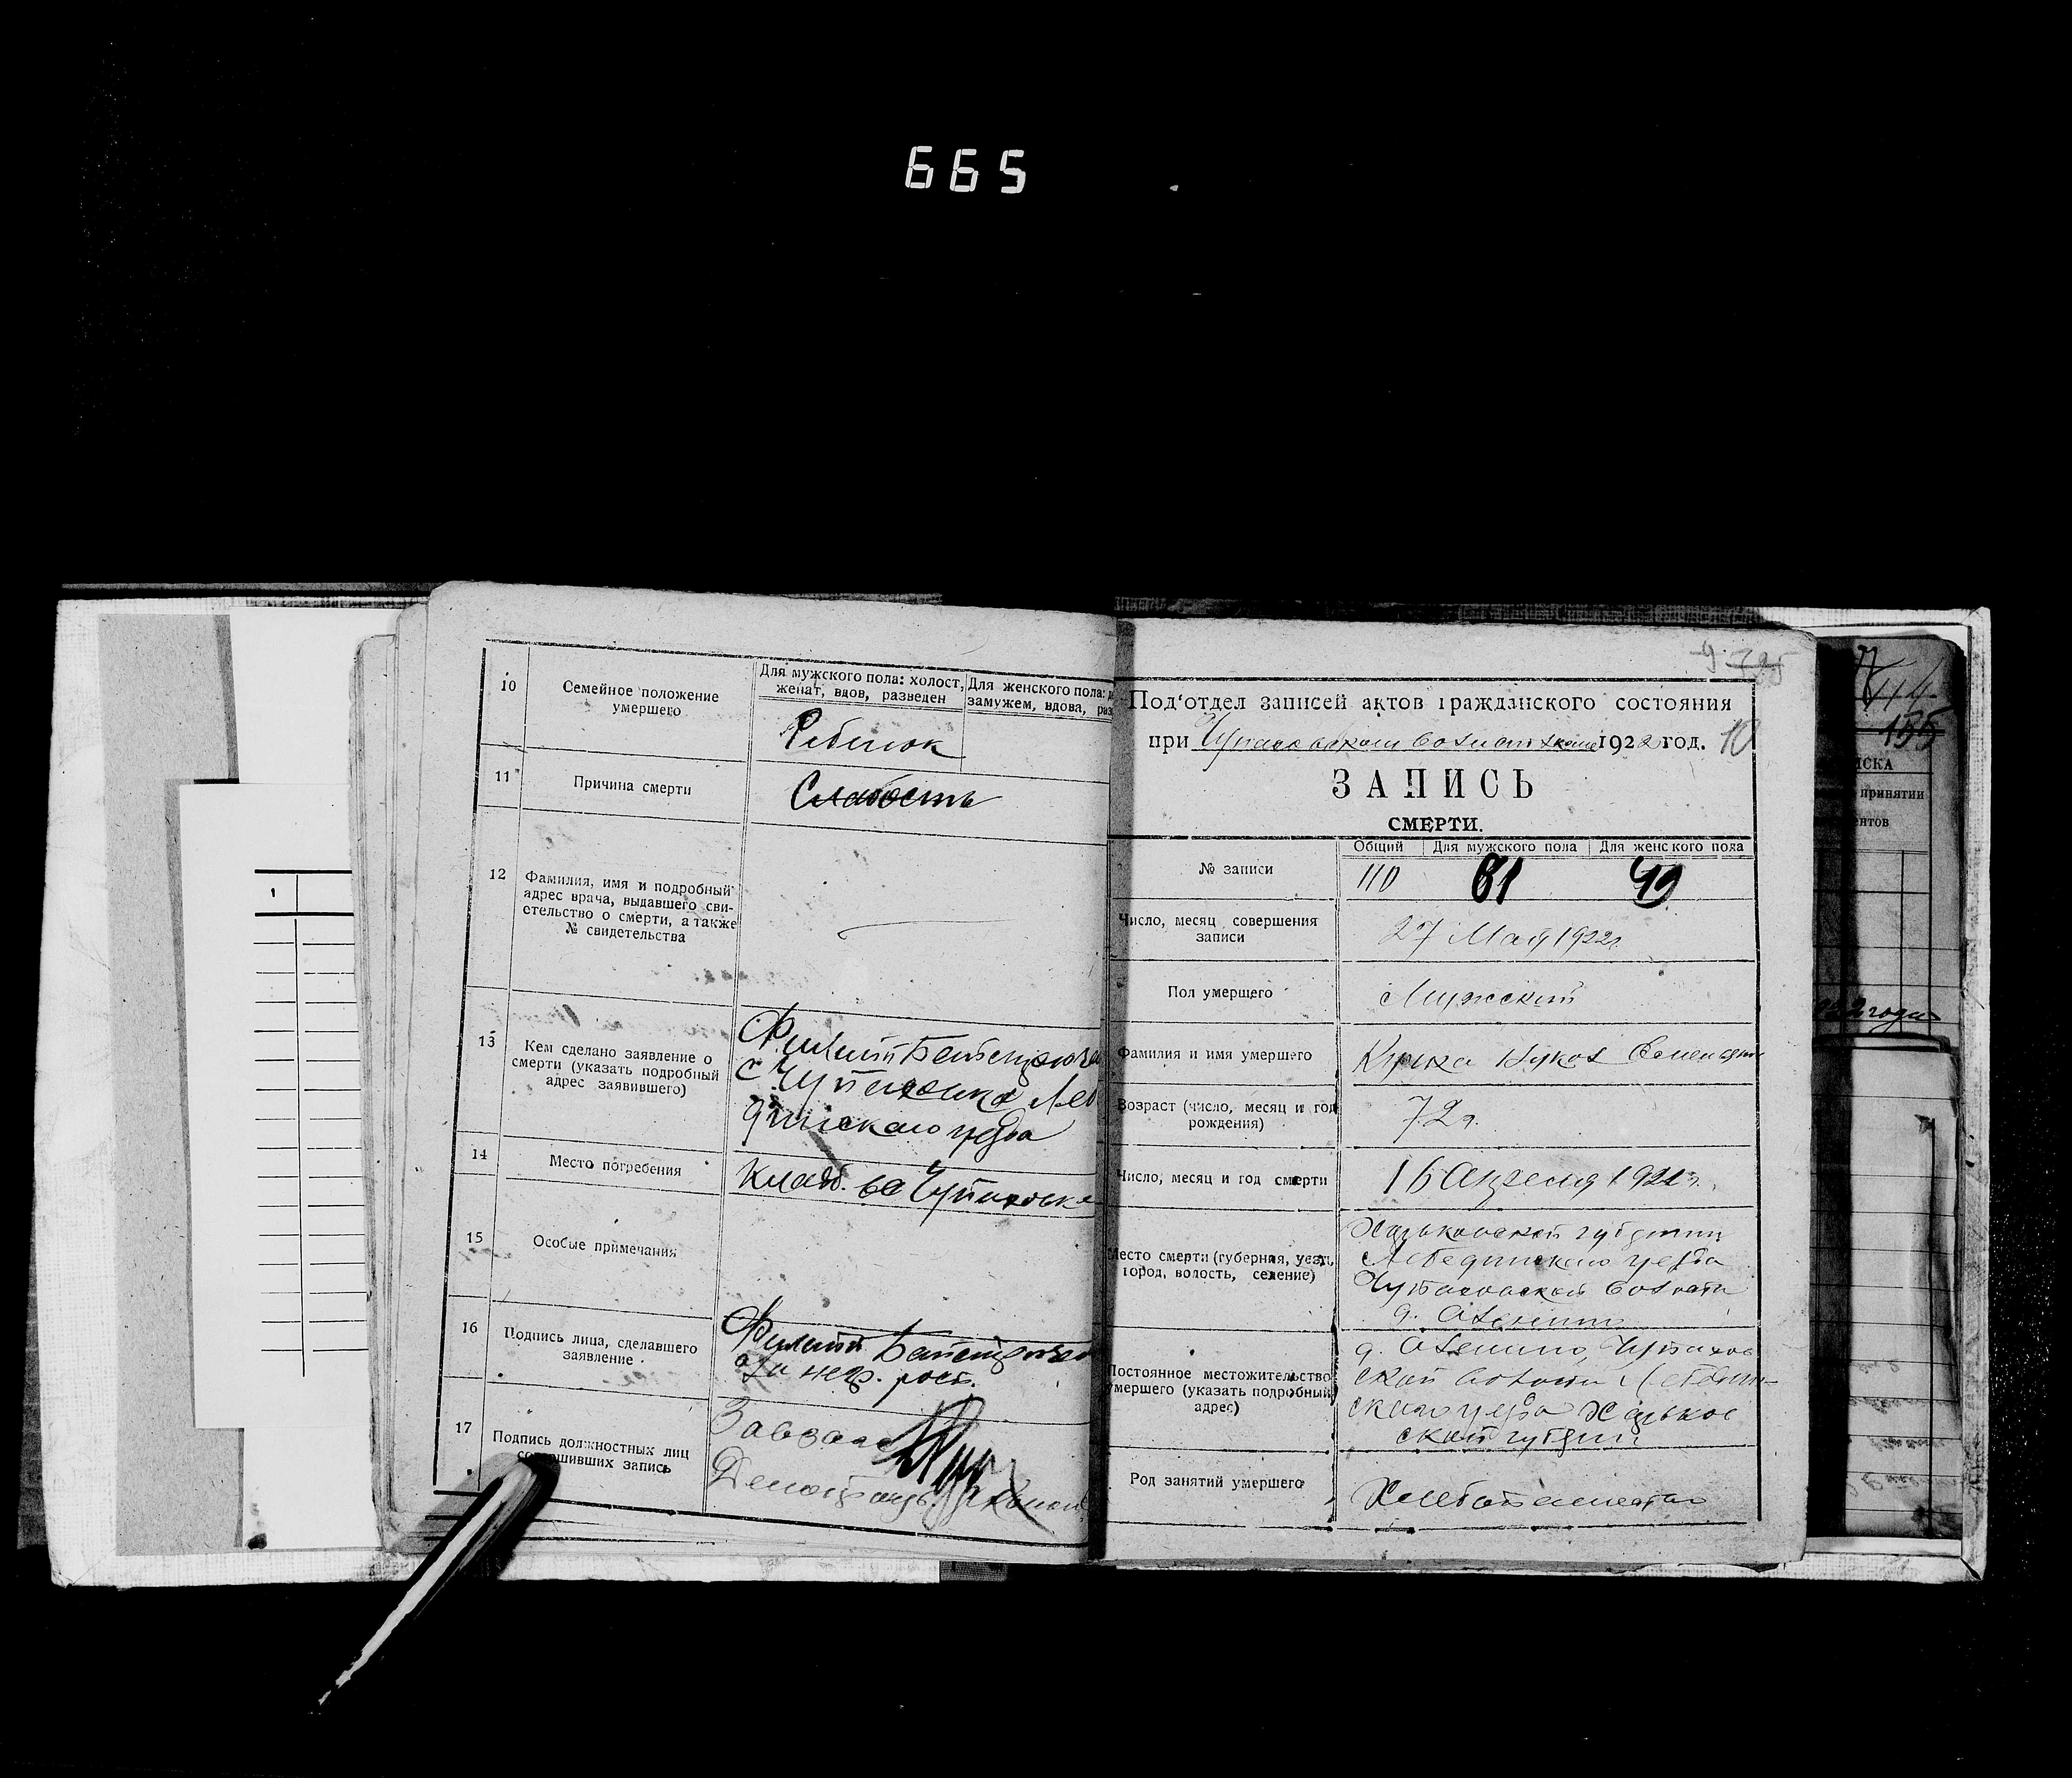 665
10
Семейное положение
умершего
Для мужского пола: холост,
женат, вдов, разведен
Для женского пола:
замужем, вдова, раз
Ребенок
11
Причина смерти
Слабость
12
Фамилия, имя и подробный
адрес врача, выдавшего сви-
етельство о смерти, а также
№ свидетельства
13
Кем сделано заявление о
смерти (указать подробный
адрес заявившего)
Филипп
с. Чупаховка Леб
динского уезда
14
Место погребения
Кладб. в с Чупаховке
15
Особые примечания
16
Подпись лица, сделавшего
заявление
Филипп
а за негр. росп.
17
Подпись должностных лиц
совершивших запись
Завзаг
Делопроизв.
9
Под'отдел записей актов гражданского состояния
при Чупаховском волисполкоме 1922 год. 10
ЗАПИСЬ
СМЕРТИ.
№ записи
Общий
Для мужского пола
Для женского пола
110
61
49
Число, месяц совершения
записи
27 Мая 1922 г.
Пол умершего
Мужский
Фамилия и имя умершего
Возраст (число, месяц и год
рождения)
72 г.
Число, месяц и год смерти
16 Апреля 1922 г.
Место смерти (губерния, уезд,
город, волость, селение)
Харьковской губернии
Лебединского уезда
Чупаховской волости
д.
Постоянное местожительство
умершего (указать подробный
адрес)
д. Чупахов
ской волости Лебедин-
ского уезда Харьков
ской губернии
Род занятий умершего
Хлебопашество
114
155
ИСКА
принятии
ентов
1922 года
1